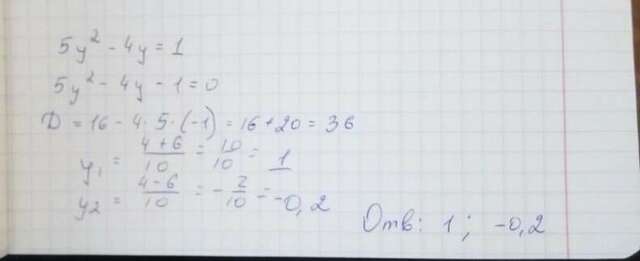 5y² - 4y = 1
5y² - 4y - 1 = 0
D = 16 - 4·5·(-1) = 16 + 20 = 36
y₁ = (4+6)/10 = 10/10 = 1
y₂ = (4-6)/10 = -2/10 = -0,2
Отв: 1; -0,2